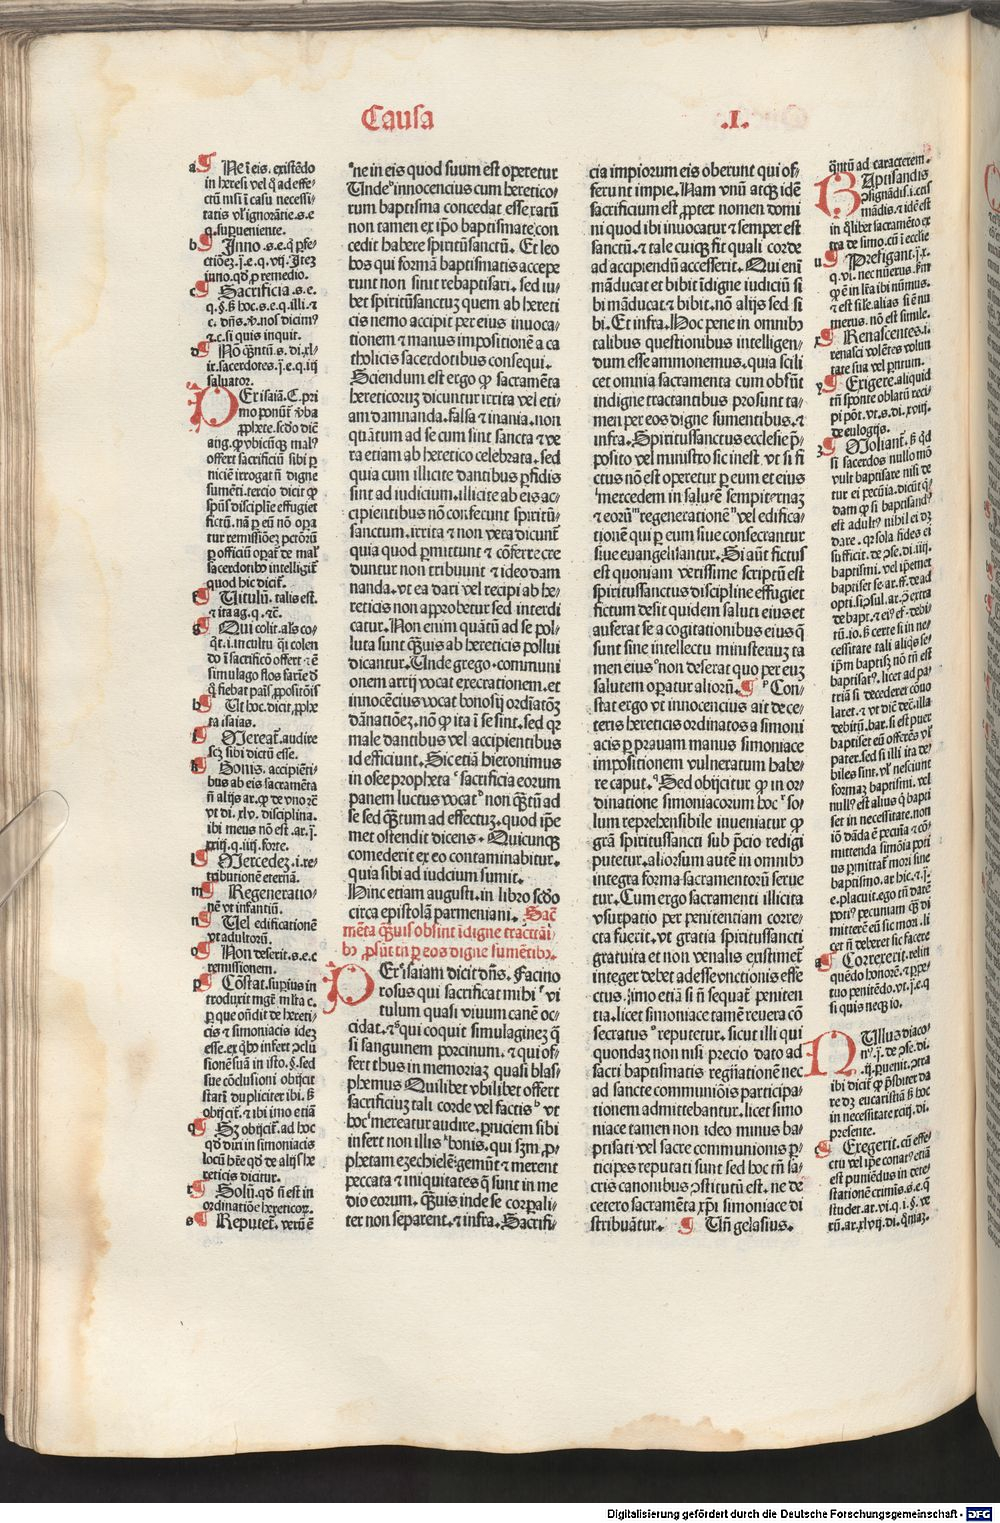 Causa .I.
a ¶ Ne ī eis. existēdo
in heresi vel q̄ ad effe-
ctū nisi ī casu necessi-
tatis vl' ignorātie. s. e
q. suꝑueniente.
b ¶ Inno. s. e. q̄ ꝑfe-
ctiōeꝫ. j. e. q. vij. Iteꝫ
iuno. qd' ꝑ remedio.
c ¶ Sacrificia. s. e.
c. dn̄s. ꝟ. nos dicimꝰ
ꝛ. c. si quis inquit.
lt. sacerdotes. j. e. q. iij
saluator.
PEr isaiā. C. pri
mo ponūt' ꝟba
ꝓphete. scd̄o dic̄
offert sacrificiū sibi ꝑ
niciē irrogat n̄ digne
sumēti. tercio dicit ꝙ
spūs discipline effugiet
fictū. nā ꝑ eū nō oꝑa
tur remissiōeꝫ pctōꝝ
sacerdotibꝰ intelligit'
quod hic dicit'.
f ¶ Vitulū. talis est.
⁊ ita ag. q. ⁊c̄.
g ¶ Qui colit. als co-
do ī sacrifico offert ⁊ ē
h ¶ Ut hoc. dicit. ꝓphe
ta isaias.
i ¶ Mereat'. audire
scꝫ sibi dictū esse.
k ¶ Bonis. accipiēti-
bus ab eis sacramēta
vt di. xlv. disciplina.
ibi meus nō est. ar. j.
xxiij. q. iiij. forte.
l ¶ Mercedeꝫ. i. re-
tributionē eternā.
m ¶ Regeneratio-
nē vt infantiū.
n ¶ Vel edificationē
vt adultorū.
o ¶ Non deserit. s. e. c
remissionem.
p ¶ Cōstat. suꝑius in
troduxit mgr̄. mlta c.
ꝑ que oñdit de hereti-
cis ⁊ simoniacis ideꝫ
esse. ex qbꝰ infert ↄclū
sionē suā in isto. §. sed
sue cōclusioni obijcit
statī dupliciter ibi. ß
obijcit'. ⁊ ibi imo etiā
q ¶ Sꝫ obijcit'. ad hoc
qd' dixi in simoniacis
locū hr̄e qd' de alijs he
reticis dicitur.
r ¶ Solū. qd' n̄ est in
ordinatiōe hereticoꝝ.
s ¶ Reputet'. verū ē
ne in eis quod suum est operetur
Unde innocencius cum heretico-
rum baptisma concedat esse ratū
non tamen ex ip̄o baptismate con
cedit habere spiritūsanctū. Et leo
hos qui formā baptismatis accepe
runt non sinit rebaptisari. sed iu-
bet spiritūsanctuꝫ quem ab hereti
cis nemo accipit per eius inuoca-
tionem ⁊ manus impositionē a ca
tholicis sacerdotibus consequi.
Sciendum est ergo ꝙ sacramēta
hereticoꝝ dicuntur irrita vel eti-
am damnanda. falsa ⁊ inania. non
quātum ad se cum sint sancta ⁊ ve
ra etiam ab heretico celebrata. sed
quia cum illicite dantibus ꝑfidis
sint ad iudicium. illicite ab eis ac-
cipientibus nō confecunt spiritū-
sanctum. irrita ⁊ non vera dicunt'
quia quod ꝑmittunt ⁊ cōferre cre
duntur non tribuunt ⁊ ideo dam
nanda. vt ea dari vel recipi ab he-
reticis non approbetur sed interdi
catur. Non enim quātū ad se pol-
luta sunt qͣuis ab hereticis pollui
dicantur. Unde grego. communi
onem arrij vocat execrationem. et
innocēcius vocat bonosij ordiatōꝫ
dānatiōeꝫ. nō ꝙ ita ī se sint. sed qꝛ
male dantibus vel accipientibus
id efficiunt. Sic etiā hieronimus
in osee propheta sacrificia eorum
panem luctus vocat non qͣꝫtū ad
se sed qͣꝫtum ad effectuꝫ. quod ipē
met ostendit dicens. Quicunqꝫ
comederit ex eo contaminabitur.
quia sibi ad iudcium sumit.
Hinc etiam augusti. in libro scd̄o
circa epistolā parmeniani. Sac̄
mēta qͣuis obsint īdigne tractāti-
bꝰ ꝓsūt tn̄ ꝑ eos digne sumētibꝰ.
PEr isaiam dicit dn̄s. Facino
rosus qui sacrificat mihi vi
tulum quasi viuum canē oc-
cidat. ⁊ qui coquit simulagineꝫ q̄
si sanguinem porcinum. ⁊ qui of-
fert thus in memoriaꝫ quasi blas-
phemus Quilibet vbilibet offert
sacrificiuꝫ tali corde vel factis vt
hoc mereatur audire. ꝑniciem sibi
infert non illis bonis. qui sꝫm ꝓ-
phetam ezechielē. gemūt ⁊ merent
peccata ⁊ iniquitates q̄ sunt in me
dio eorum. qͣuis inde se corꝑali-
ter non separent. ⁊ infra. Sacrifi-
cia impiorum eis oberunt qui of-
ferunt impie. Nam vnū atqꝫ idē
sacrificium est ꝓpter nomen domi
ni quod ibi inuocatur ⁊ semper est
sanctū. ⁊ tale cuiqꝫ fit quali corde
ad accipiendū accesserit. Qui eni
māducat et bibit īdigne iudiciū si
bi māducat ⁊ bibit. nō alijs sed si
bi. Et infra. Hoc pene in omnibꝰ
talibus questionibus intelligen-
dum esse ammonemus. quia scili
cet omnia sacramenta cum obsūt
indigne tractantibus prosunt ta-
men per eos digne sumentibus. ⁊
infra. Spiritussanctus ecclesie p̄-
posito vel ministro sic inest. vt si fi
ctus nō est operetur ꝑ eum et eius
mercedem in salutē sempiternaꝫ
⁊ eorū regenerationē vel edifica-
tionē qui ꝑ eum siue consecrantur
siue euangelisantur. Si aūt fictus
est quoniam verissime scriptū est
spiritussanctus discipline effugiet
fictum desit quidem saluti eius et
auferat se a cogitationibus eius q̄
sunt sine intellectu ministeriuꝫ ta
men eius non deserat quo per euꝫ
salutem oꝑatur aliorū. ¶ Con-
stat ergo vt innocencius ait de ce-
teris hereticis ordinatos a simoni
acis ꝑ prauam manus simoniace
impositionem vulneratum habe-
re caput. Sed obijcitur ꝙ in or-
dinatione simoniacorum hoc so-
lum reprehensibile inueniatur ꝙ
grā spiritussancti sub p̄cio redigi
putetur. aliorsum autē in omnibꝰ
integra forma sacramentorū serue
tur. Cum ergo sacramenti illicita
vsurpatio per penitentiam corre-
cta fuerit. vt gratia spiritussancti
gratuita et non venalis existimet'
integer debet adesse vnctionis effe
ctus. ȷ̄mo etiā si n̄ sequat' peniten
tia. licet simoniace tamē reuera cō
secratus reputetur. sicut illi qui
quondaꝫ non nisi precio dato ad
sacri baptismatis regn̄ationē nec
ad sancte communiōis participa-
tionem admittebantur. licet simo
niace tamen non ideo minus ba-
ptisati vel sacre communionis ꝑ-
ticipes reputati sunt sed hoc tn̄ sa-
cris canonibus ↄstitutū est. ne de
cetero sacramēta xp̄i simoniace di
stribuātur. ¶ Un̄ gelasius.
qͣntū ad caracterem.
BAptisandis
ↄsignādis. i. cōf
māndis. ⁊ idē est
in qͣlibet sacramēto ex
tra de simo. cū ī ecclie
u ¶ Prefigant. j. x.
⁊ est sile. alias si ē nu
merus. nō est simile.
x ¶ Renascentes. i.
renasci volētes volun
tate sua vel pn̄tum.
y ¶ Exigere. aliquid
tn̄ sponte oblatū reci-
pi pōt. vt. s. di. xviij.
de eulogijs.
z ¶ Moliant'. ß qd
si sacerdos nullo mō
vult baptisare nisi de
tur ei pecūia. dicūt q̄-
dam ꝙ si baptisandꝰ
est adultꝰ nihil ei dꝫ
dare. qꝛ sola fides ei
sufficit. de ↄse. di. iiij.
baptismi. vel ip̄emet
baptiset se ar. ff. de ad
cessitate tali aliqͥs se-
ip̄m baptisꝫ nō tn̄ est
baptisatꝰ. licet ad pa-
triā si decederet euo-
laret. ⁊ vt dic̄ dec̄. illa
debitū. bar. si est puer
baptiset eū offerēs vl'
pater. sed si illi ita de-
biles sint. vl' nesciunt
formaꝫ baptismi. vel
nullꝰ est aliꝰ q̄ bapti
set in necessitate. non
iō dāda ē pecūia ⁊ cō-
mittenda simōia poti
us ꝑmittat' mori sine
baptismo. ar. hic. ⁊. j.
e. placuit. ego tn̄ darē
potiꝰ pecuniam qͣꝫ di
mitterē eū sic mori. li
cet n̄ deberet sic facere
a ¶ Correxerit. relin
quēdo honorē. ⁊ ꝑpe-
tuo penitēdo. vt. j. e. q
si quis neqꝫ io.
NUllus diaco-
nꝰ. j. de ↄse. di.
.ij. ꝑuenit. ↄtra
ibi dicit' ꝙ p̄sbiter da
re dꝫ eucaristiā ß hoc
in necessitate xciij. di.
presente.
¶ Exegerit. cū effe-
ctu vel ip̄e conatꝰ etiā
est puniēdus in dete-
stationē crimīs. s. e. q
studet. ar. vi. q. i. §. ve
rū. ar. xlvij. di. qm̄aꝫ.
Digitalisierung gefördert durch die Deutsche Forschungsgemeinschaft - DFG